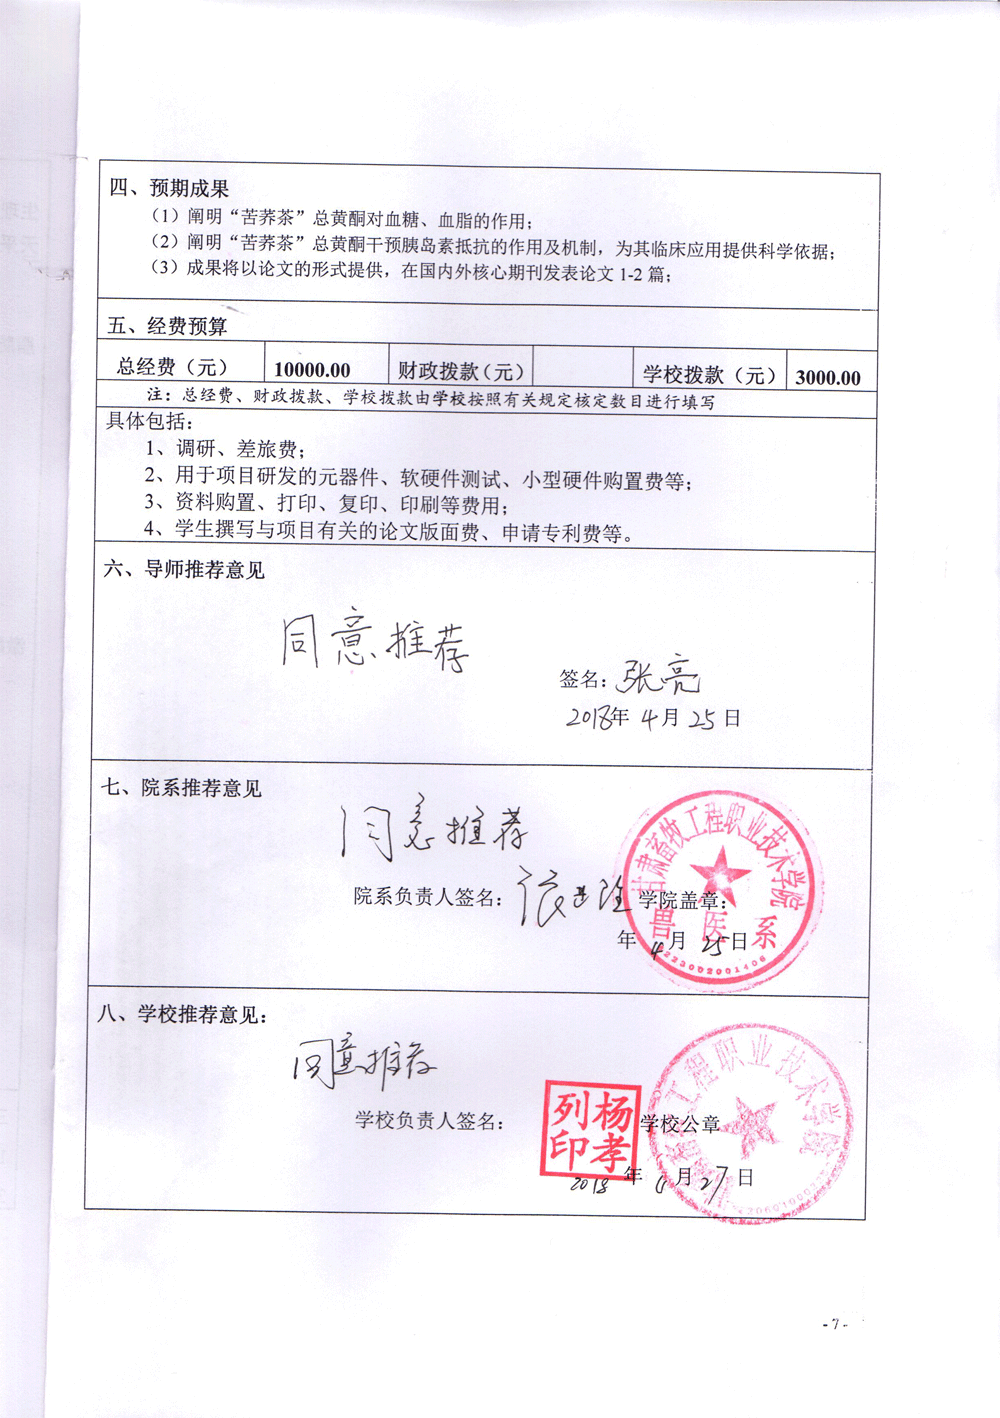 四、预期成果
（1）阐明“苦荞茶”总黄酮对血糖、血脂的作用；
（2）阐明“苦荞茶”总黄酮干预胰岛素抵抗的作用及机制，为其临床应用提供科学依据；
（3）成果将以论文的形式提供，在国内外核心期刊发表论文 1-2 篇；
五、经费预算
总经费（元） 10000.00 财政拨款（元） 学校拨款（元） 3000.00
注：总经费、财政拨款、学校拨款由学校按照有关规定核定数目进行填写
具体包括：
1、调研、差旅费；
2、用于项目研发的元器件、软硬件测试、小型硬件购置费等；
3、资料购置、打印、复印、印刷等费用；
4、学生撰写与项目有关的论文版面费、申请专利费等。
六、导师推荐意见
同意推荐
签名：张亮
2018年 4月 25日
七、院系推荐意见
同意推荐
甘肃畜牧工程职业技术学院
院系负责人签名： 学院盖章：
兽医系
年 4月 25日
八、学校推荐意见：
同意推荐
工程职业技术学院
学校负责人签名： 杨孝列印 学校公章
2018 年 月 27日
-7-